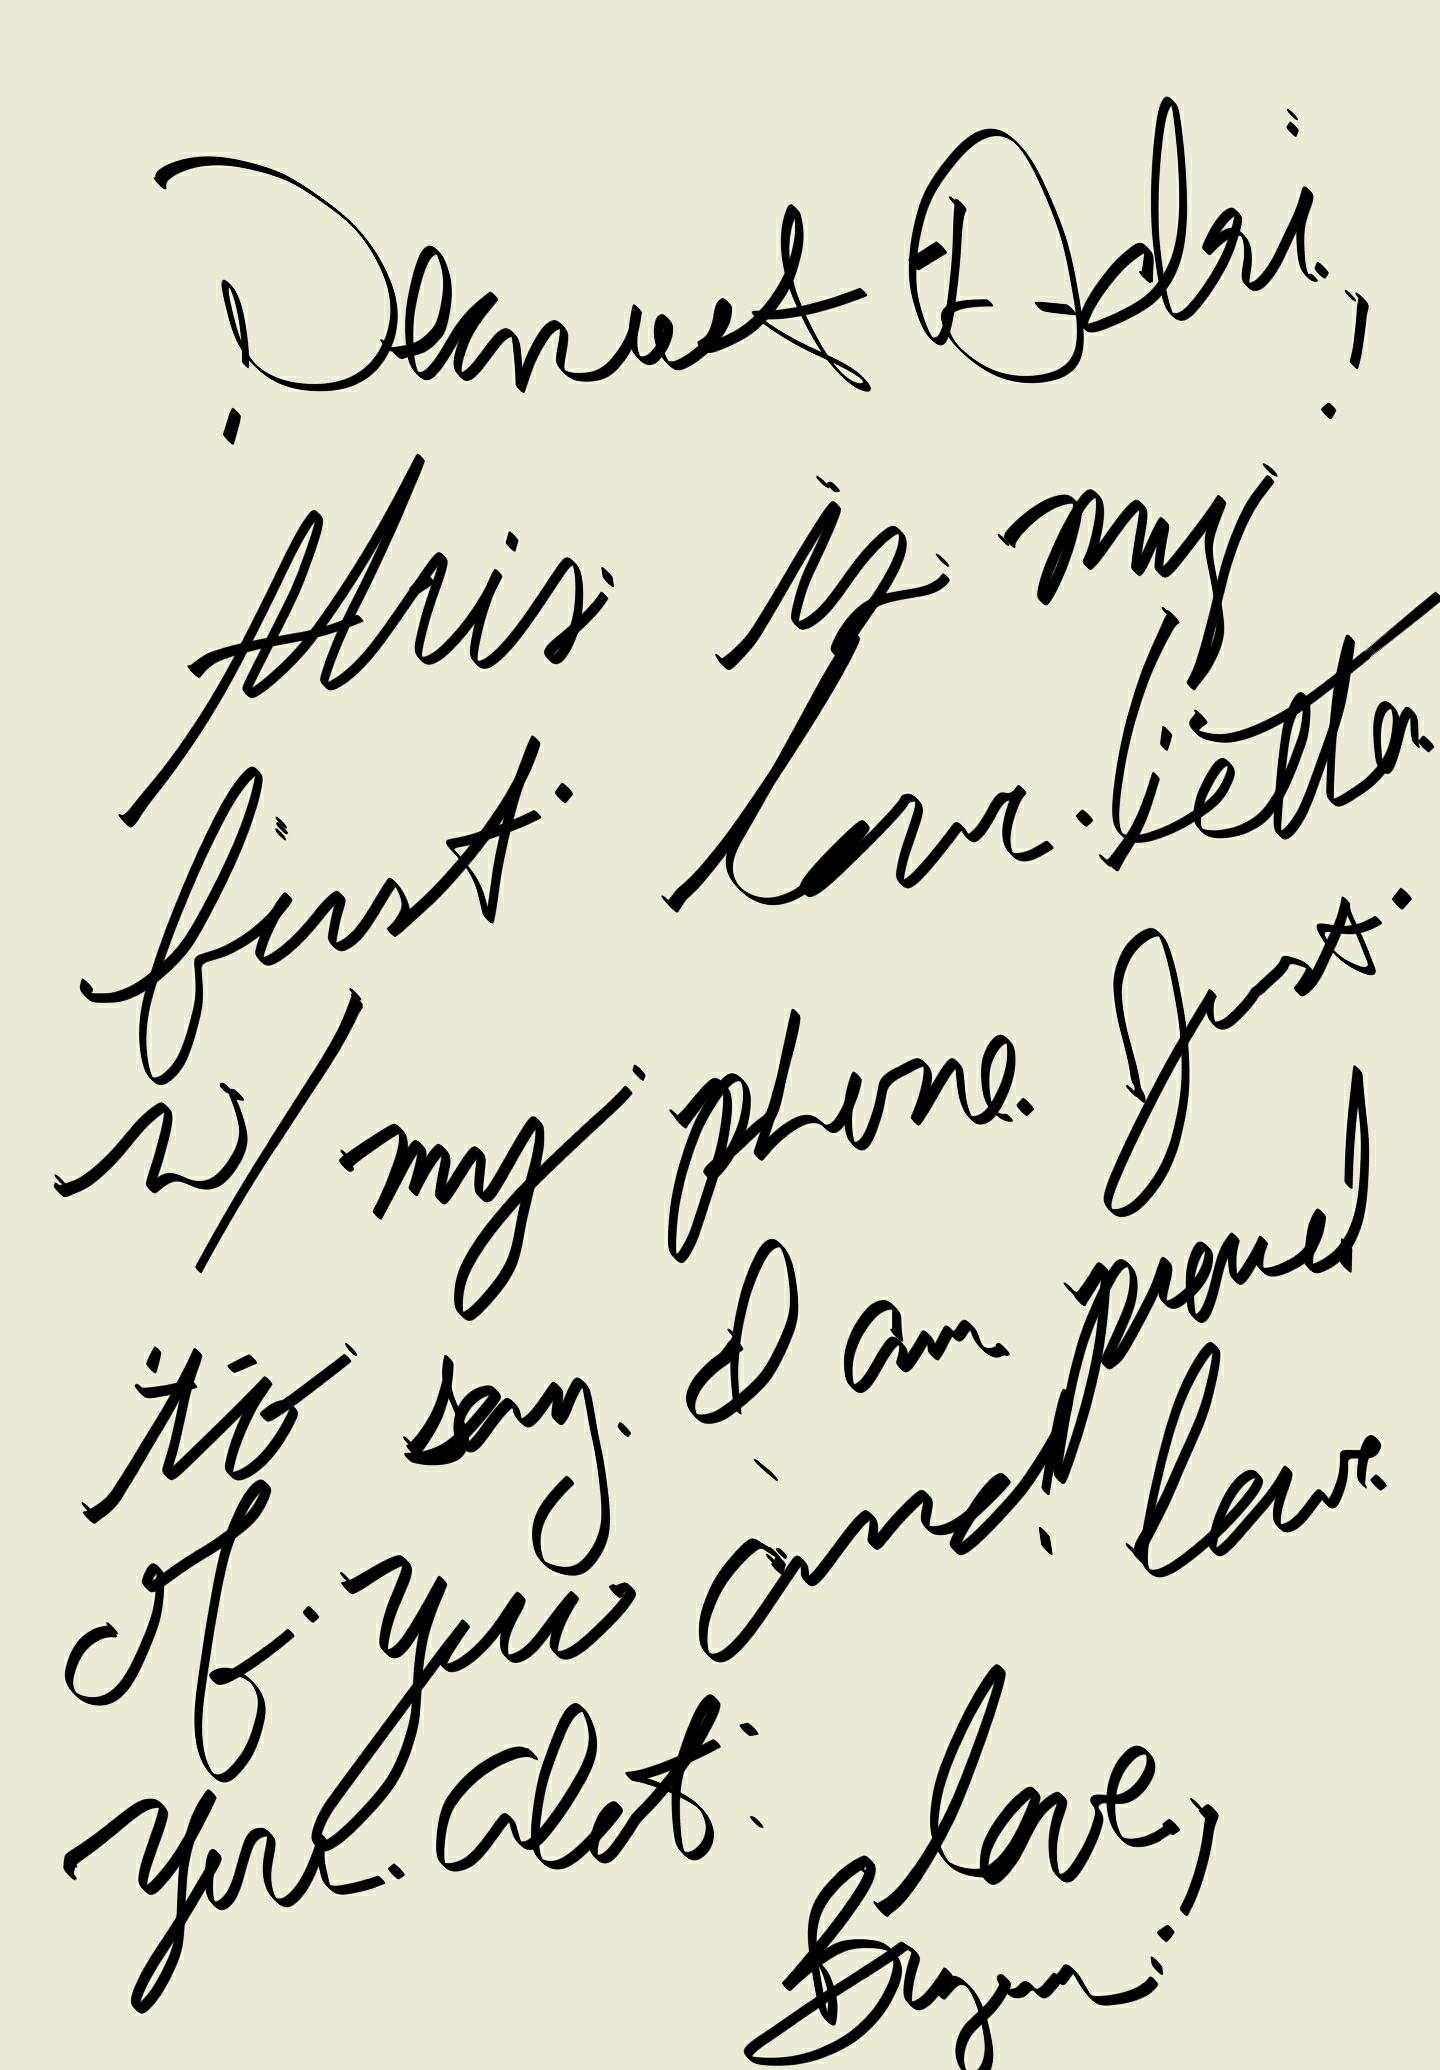 Dearest Odri,
this is my
first Love letter
w/ my phone. Just
to say. I am proud
of you and love
you alot.
love,
Bryan